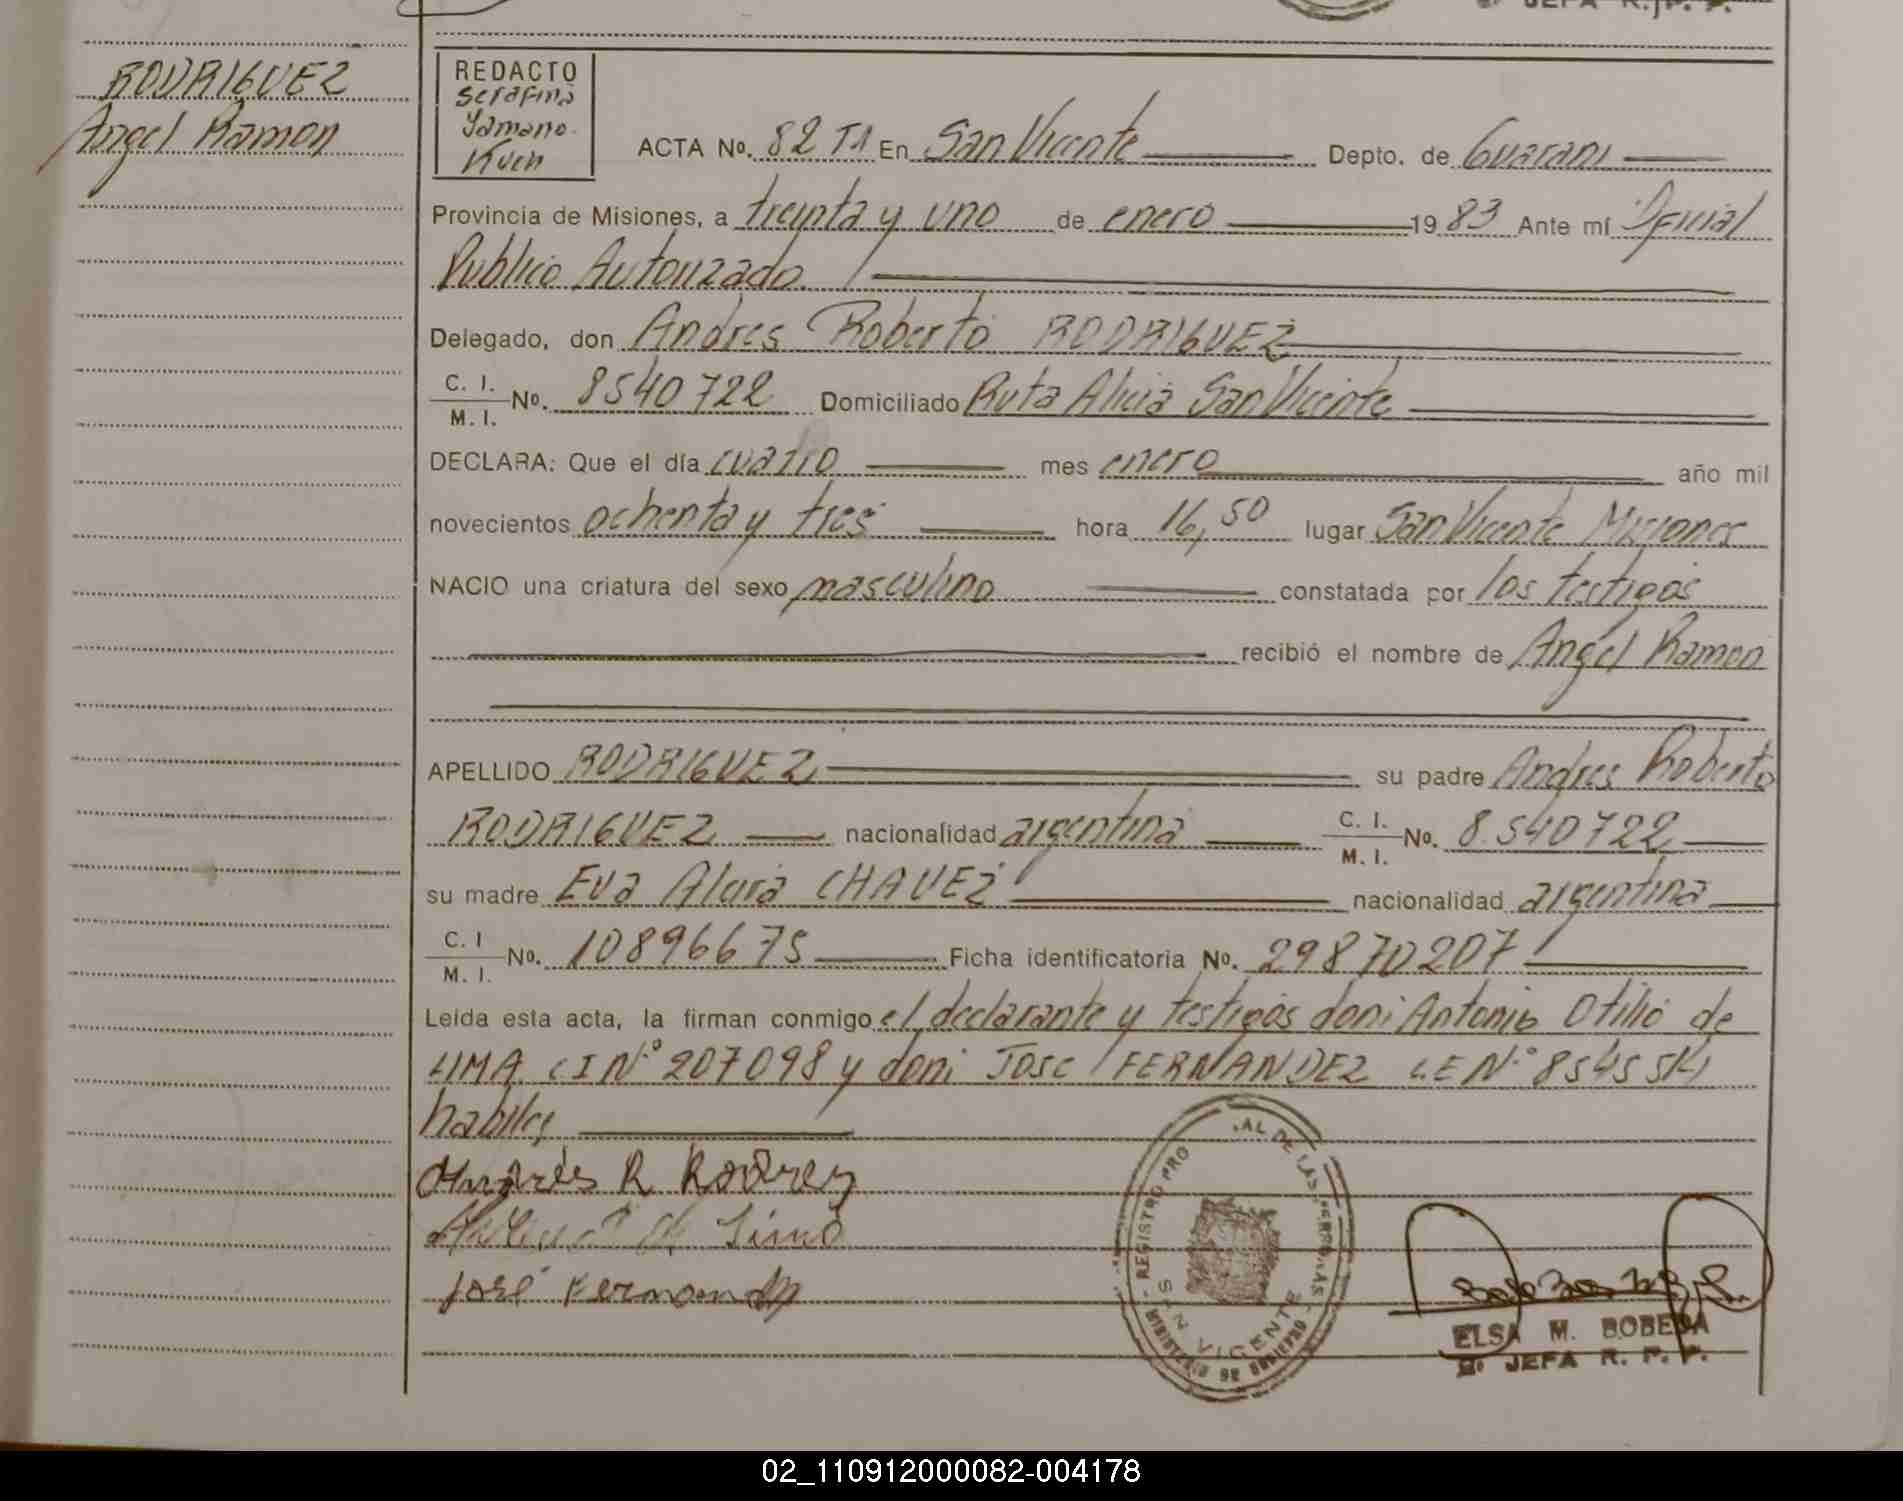 JEFA R. P. P.
RODRIGUEZ
Angel Ramon
REDACTO
Serafina
Yamano
Kuen
ACTA No. 82 T1 En San Vicente Depto. de Guarani
Provincia de Misiones, a treinta y uno de enero 1983 Ante mí Oficial
Publico Autorizado
Delegado, don Andres Roberto RODRIGUEZ
C. I.
M. I. No. 8540722 Domiciliado Ruta Alicia San Vicente
DECLARA: Que el día cuatro mes enero año mil
novecientos ochenta y tres hora 16,50 lugar San Vicente Misiones
NACIO una criatura del sexo masculino constatada por los testigos
recibió el nombre de Angel Ramon
APELLIDO RODRIGUEZ su padre Andres Roberto
RODRIGUEZ nacionalidad argentina C. I.
M. I. No. 8.540722
su madre Eva CHAVEZ nacionalidad argentina
C. I
M. I. No. 10896675 Ficha identificatoria No. 29870207
Leída esta acta, la firman conmigo el declarante y testigos don: Antonio Otilio de
LIMA CI N° 207098 y don: Jose FERNANDEZ LE N°
habiles
Andrés R
José Fernandez
REGISTRO PRO AL DE LAS PERSONAS
SAN VICENTE
ELSA M. BOBEDA
JEFA R. P. P.
02_110912000082-004178